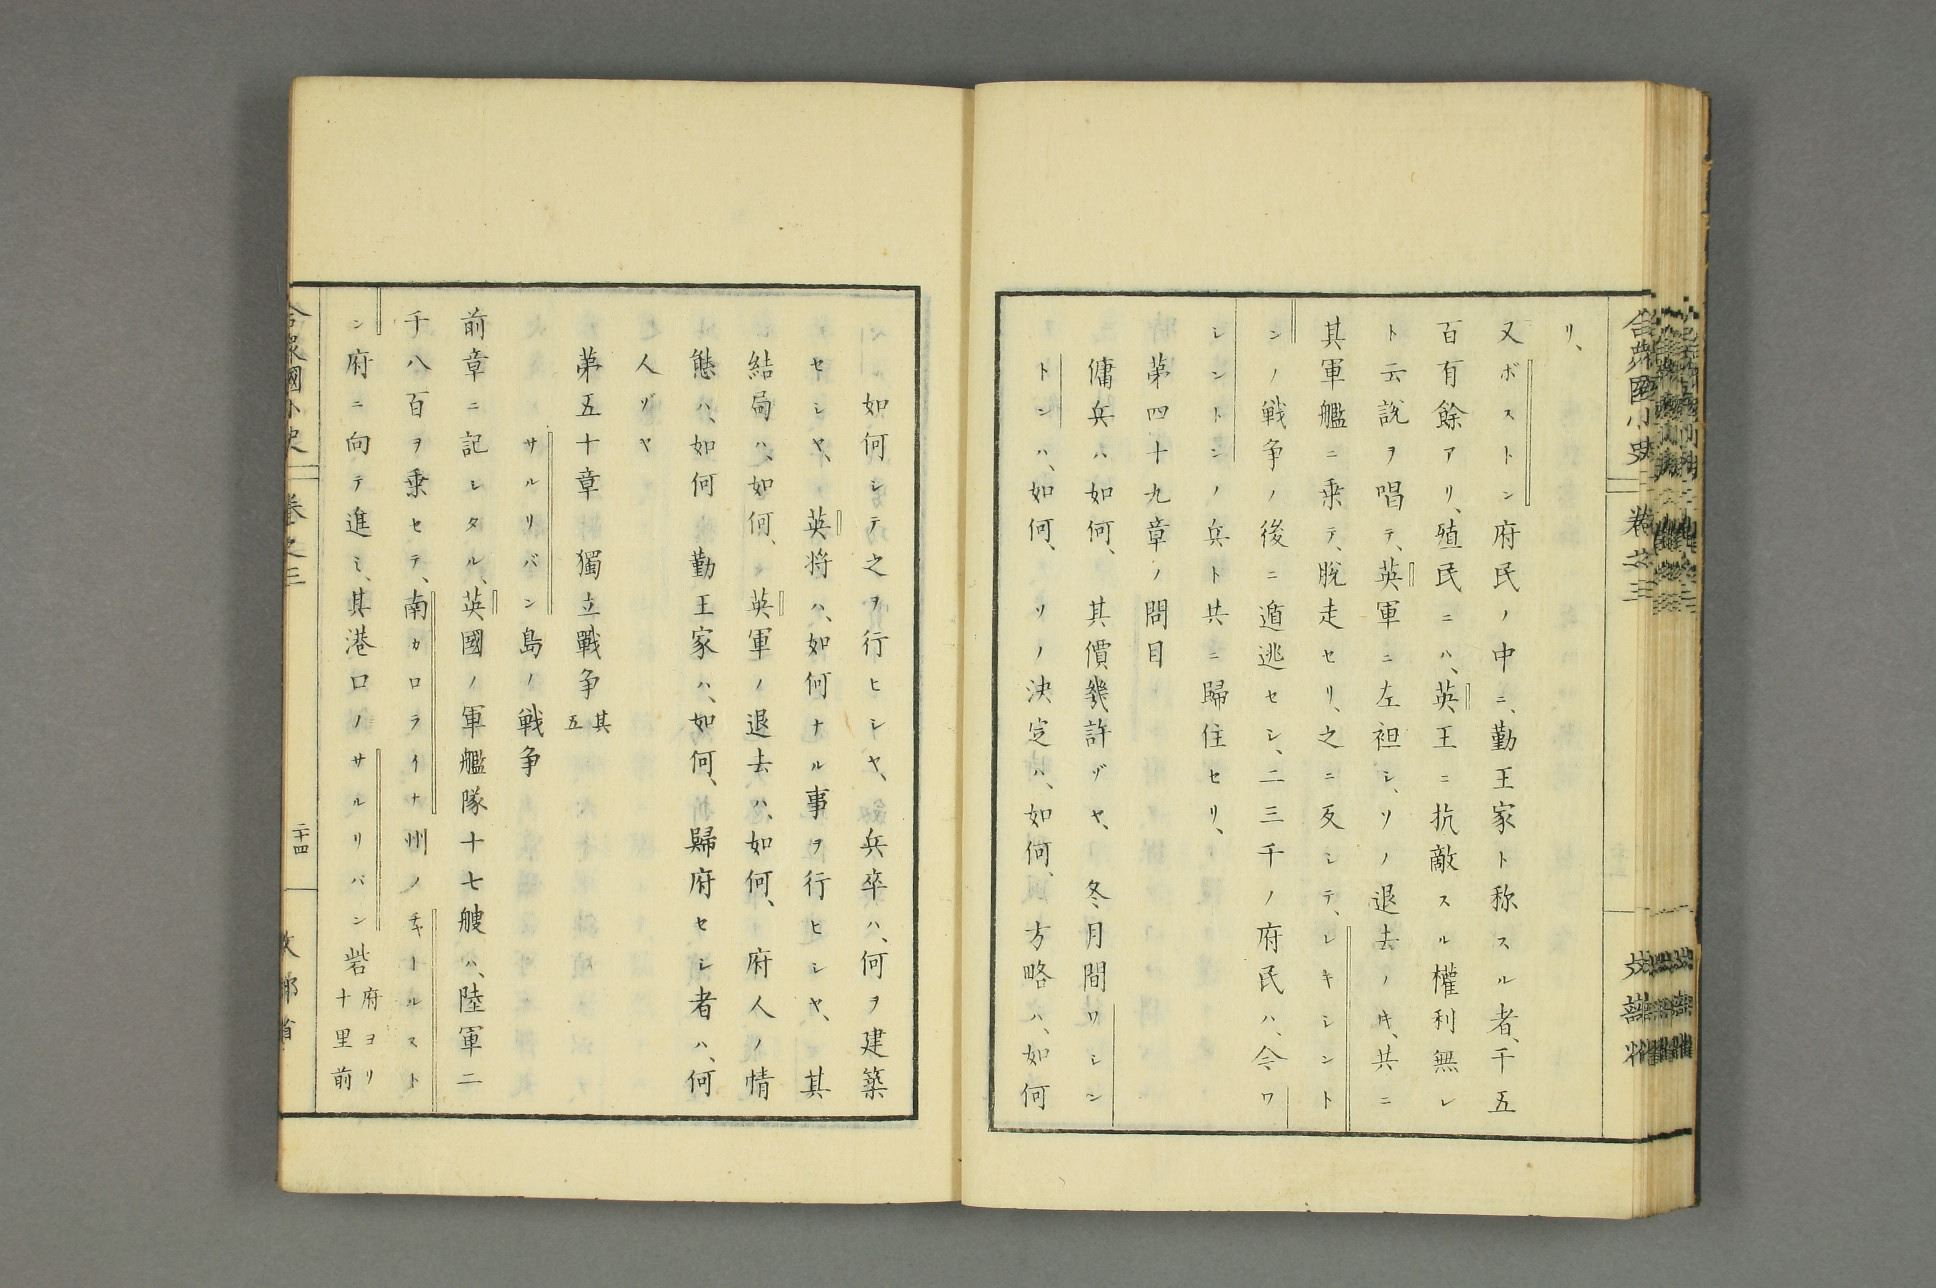 合衆國小史 卷之三 文部省
リ、
又ボストン府民ノ中ニ、勤王家ト称スル者、千五
百有餘アリ、殖民ニハ、英王ニ抗敵スル權利無レ
ト云説ヲ唱テ、英軍ニ左袒シ、ソノ退去ノ𪜈、共ニ
其軍艦ニ乗テ、脱走セリ、之ニ反シテ、レキシント
ンノ戦争ノ後ニ遁逃セシ、二三千ノ府民ハ、今ワ
シントンノ兵ト共ニ歸住セリ、
第四十九章ノ問目
傭兵ハ如何、其價幾許ゾヤ、冬月間ワシン
トンハ、如何、ソノ決定ハ、如何、方略ハ、如何
如何シテ之ヲ行ヒシヤ、兵卒ハ、何ヲ建築
セシヤ、英将ハ、如何ナル事ヲ行ヒシヤ、其
結局ハ、如何、英軍ノ退去ハ、如何、府人ノ情
態ハ、如何勤王家ハ、如何、歸府セシ者ハ、何
人ゾヤ
第五十章 獨立戰争 其五
サルリバン島ノ戦争
前章ニ記シタル、英國ノ軍艦隊十七艘ハ、陸軍二
千八百ヲ乗セテ、南カロライナ州ノチャールスト
ン府ニ向テ進ミ、其港口ノサルリバン砦府ヨリ十里前
合衆國小史 卷之三 二十四 文部省